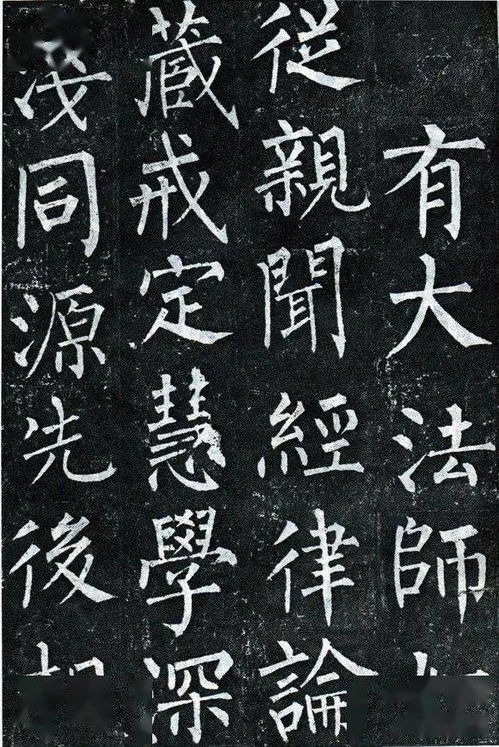 有大法師
從親聞經律論
藏戒定慧學深
淺同源先後